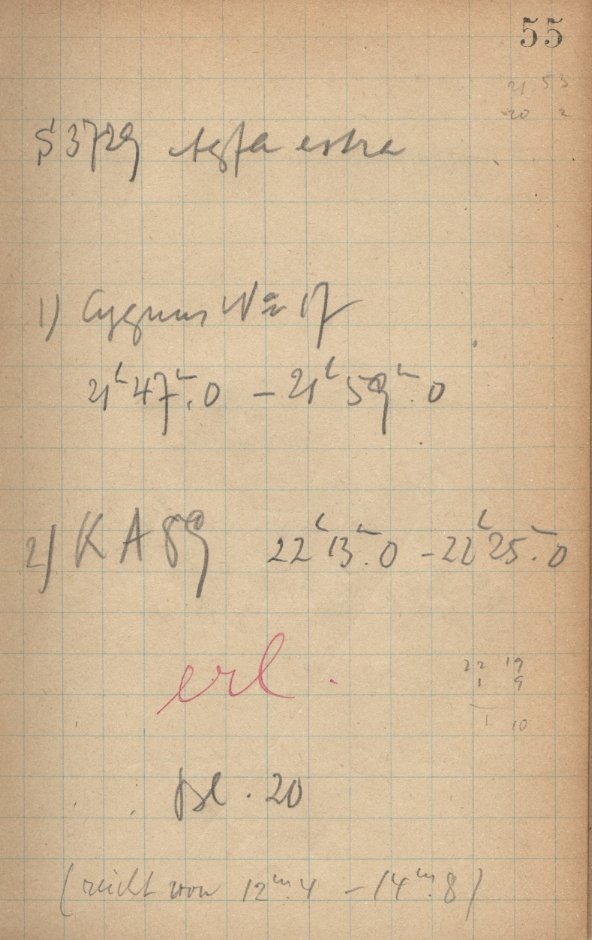 55
21 53
20 2
S 3729 Agfa extra
1) Cygnus No 17
21h 47m.0 – 21h 59m.0
2) KA 89 22h 13m.0 – 22h 25m.0
erl.
22 19
1 9
1 10
Bl. 20
(reicht von 12m.4 – 14m.8)